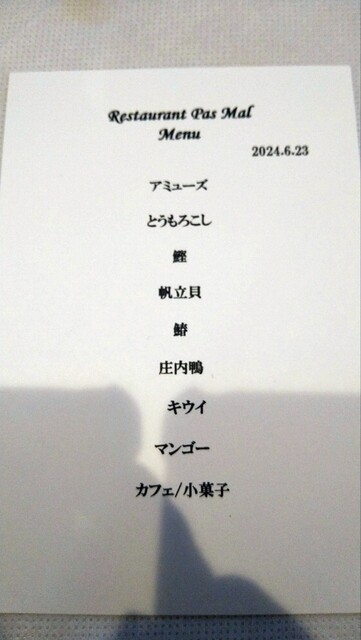 Restaurant Pas Mal
Menu
2024.6.23
アミューズ
とうもろこし
鰹
帆立貝
鰆
庄内鴨
キウイ
マンゴー
カフェ/小菓子